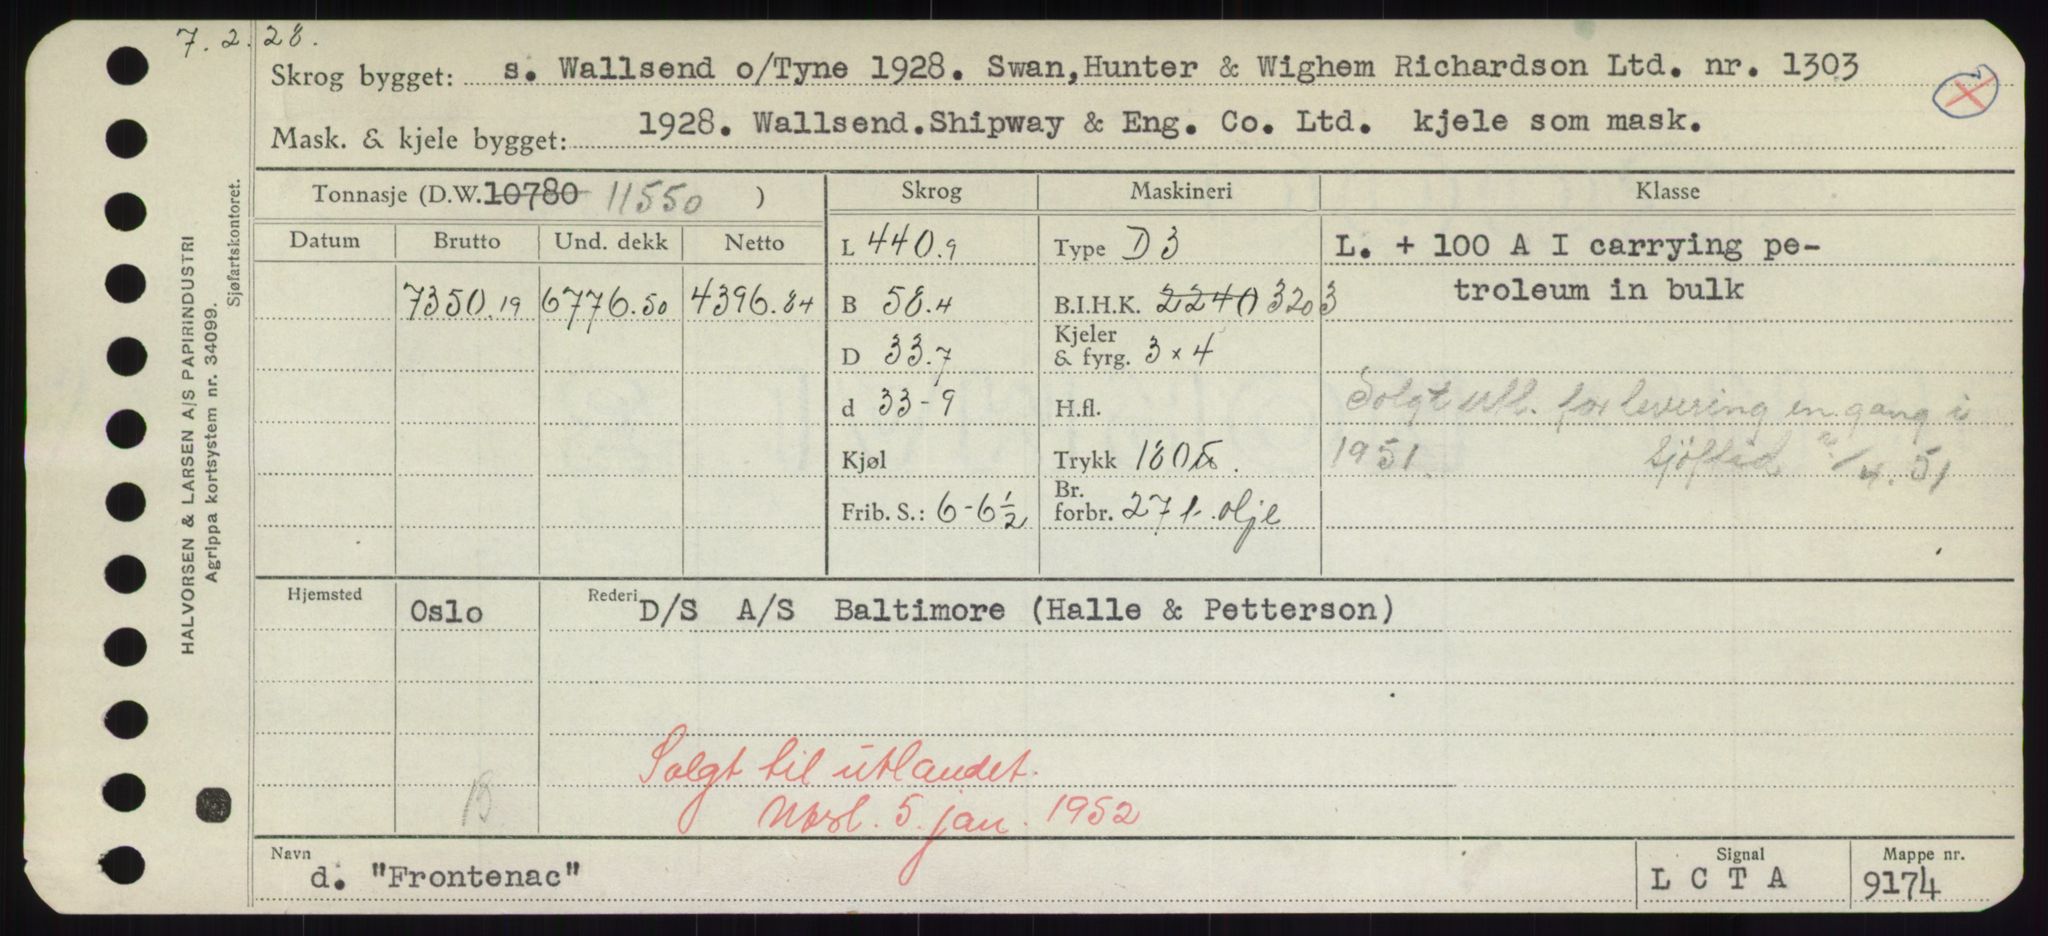 7.2.28.
Skrog bygget: s. Wallsend o/Tyne 1928. Swan,Hunter & Wighem Richardson Ltd. nr. 1303
Mask. & kjele bygget: 1928. Wallsend.Shipway & Eng. Co. Ltd. kjele som mask.
HALVORSEN & LARSEN A/S PAPIRINDUSTRI
Agrippa kortsystem nr. 34099.
Sjøfartskontoret.
Tonnasje (D.W. 10780 11550 )
Datum Brutto Und. dekk Netto
7350.19 6776.50 4396.84
Skrog
L 440.9
B 58.4
D 33.7
d 33-9
Kjøl
Frib. S.: 6-6½
Maskineri
Type D 3
B.I.H.K. 2240 3203
Kjeler
& fyrg. 3 x 4
H.fl.
Trykk 180
Br.
forbr. 27 t. olje
Klasse
L. + 100 A I carrying pe-
troleum in bulk
Solgt utl. for levering en gang i
1951. Sjöfted /4.51
Hjemsted Oslo
Rederi D/S A/S Baltimore (Halle & Petterson)
Solgt til utlandet.
5. jan. 1952
B
Navn d. "Frontenac"
Signal L C T A
Mappe nr. 9174